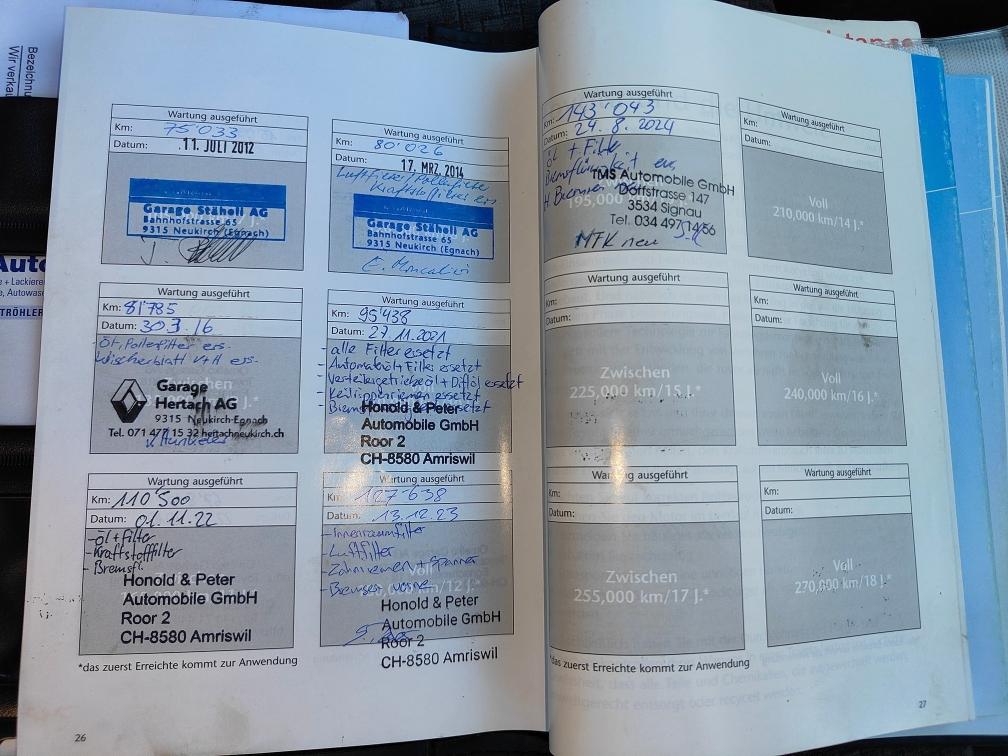 Bezeichnu
Wir verka
Auto
e + Lackiere
e, Autowas
STRÖHLER
Wartung ausgeführt
Km: 75'033
Datum: 11. JULI 2012
Garage Stäheli AG
Bahnhofstrasse 65
9315 Neukirch (Egnach)
Wartung ausgeführt
Km: 80'026
Datum: 17. MRZ. 2014
Luftfilter/Pollenfilter
Kraftstofffilter ers
Garage Stäheli AG
Bahnhofstrasse 65
9315 Neukirch (Egnach)
Wartung ausgeführt
Km: 81'785
Datum: 30.3.16
Öl, Pollenfilter ers.
Wischerblatt V+H ers.
Zwischen
Garage
Hertach AG
9315 Neukirch-Egnach
Tel. 071 477 15 32 hertachneukirch.ch
Wartung ausgeführt
Km: 95'438
Datum: 27.11.2021
alle Filter ersetzt
- Automatiköl + Filter ersetzt
- Verteilergetriebeöl + Diföl ersetzt
- Keilrippenriemen ersetzt
Honold & Peter
Automobile GmbH
Roor 2
CH-8580 Amriswil
Wartung ausgeführt
Km: 110'500
Datum: 01.11.22
- Öl + Filter
- Kraftstofffilter
- Bremsfl.
Honold & Peter
Automobile GmbH
Roor 2
CH-8580 Amriswil
Wartung ausgeführt
Km: 127'638
Datum: 13.12.23
- Innenraumfilter
- Luftfilter
- Zahnriemen + Spanner
- Bremsen vorne
Voll
km/12 J.*
Honold & Peter
Automobile GmbH
Roor 2
CH-8580 Amriswil
*das zuerst Erreichte kommt zur Anwendung
26
Wartung ausgeführt
Km: 143'043
Datum: 24.8.2024
Öl + Filter
195,000
TMS Automobile GmbH
Dorfstrasse 147
3534 Signau
Tel. 034 497 14 56
MTK neu
Wartung ausgeführt
Km:
Datum:
Voll
210,000 km/14 J.*
Wartung ausgeführt
Km:
Datum:
Zwischen
225,000 km/15 J.*
Wartung ausgeführt
Km:
Datum:
Voll
240,000 km/16 J.*
Wartung ausgeführt
Km:
Datum:
Zwischen
255,000 km/17 J.*
Wartung ausgeführt
Km:
Datum:
Voll
270,000 km/18 J.*
*das zuerst Erreichte kommt zur Anwendung
27